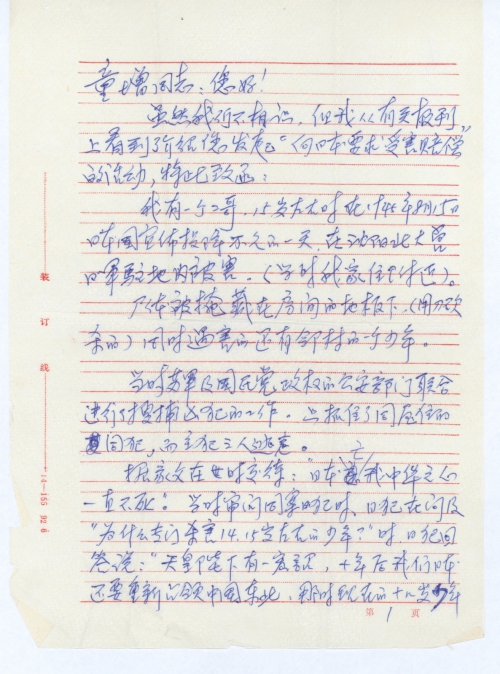 童增同志：您好！
虽然我们不相识，但我从有关报刊
上看到了介绍您发起“向日本要求受害赔偿”
的活动，特此致函：
我有一个二哥，15岁左右时在1945年8月15日
日本国宣布投降不久的一天，在沈阳北大营
日军驻地内被害。（当时我家住附近）。
尸体被掩藏在房间的地板下，（用刀砍
杀的）同时遇害的还有邻村的一个少年。
当时苏军及国民党政权的公安部门联合
进行了搜捕凶犯的工作。只抓住了同居住的
同犯，而主犯三人逃走。
据家父在世时交待：“日本亡我中华之心
一直不死”。当时审问同案凶犯时，日犯在问及
“为什么专门杀害14.15岁左右的少年？”时日犯回
答说：“天皇陛下有一密诏，十年后我们日本
还要重新占领中国东北，那时现在的十几岁少年
装
订
线
14—155 92.6
第 1 页